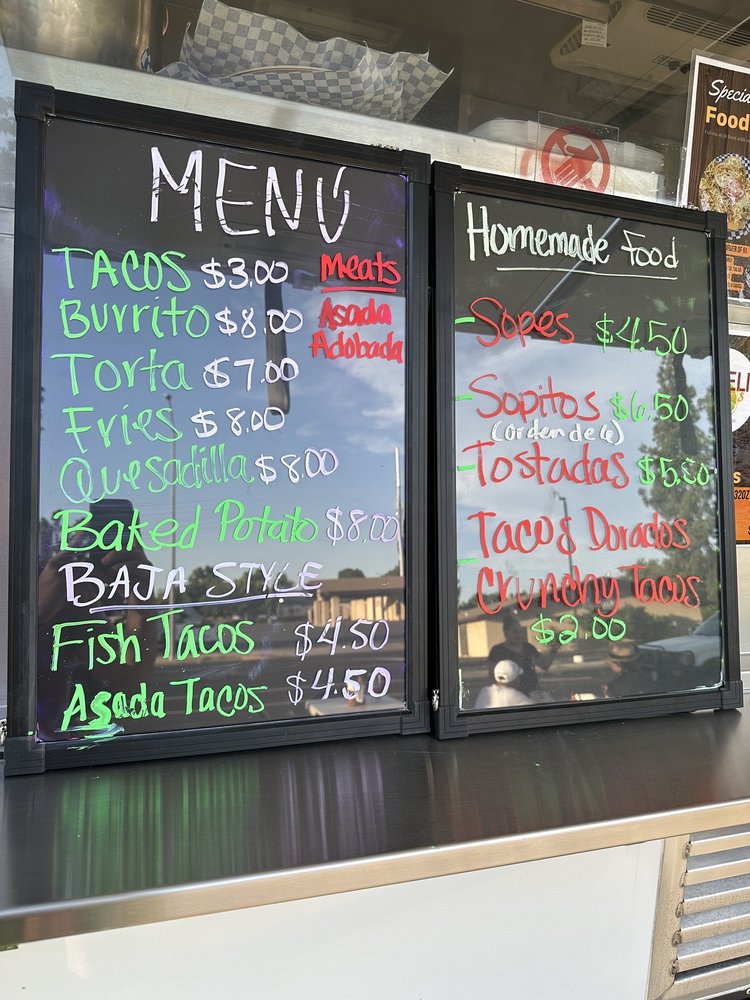 MENÚ
TACOS $3.00
Burrito $8.00
Torta $7.00
Fries $8.00
Quesadilla $8.00
Baked Potato $8.00
BAJA STYLE
Fish Tacos $4.50
Asada Tacos $4.50
Meats
Asada
Adobada
Homemade Food
- Sopes $4.50
- Sopitos $6.50
(orden de 6)
- Tostadas $5.50
Tacos Dorados
- Crunchy Tacos
$2.00
Food